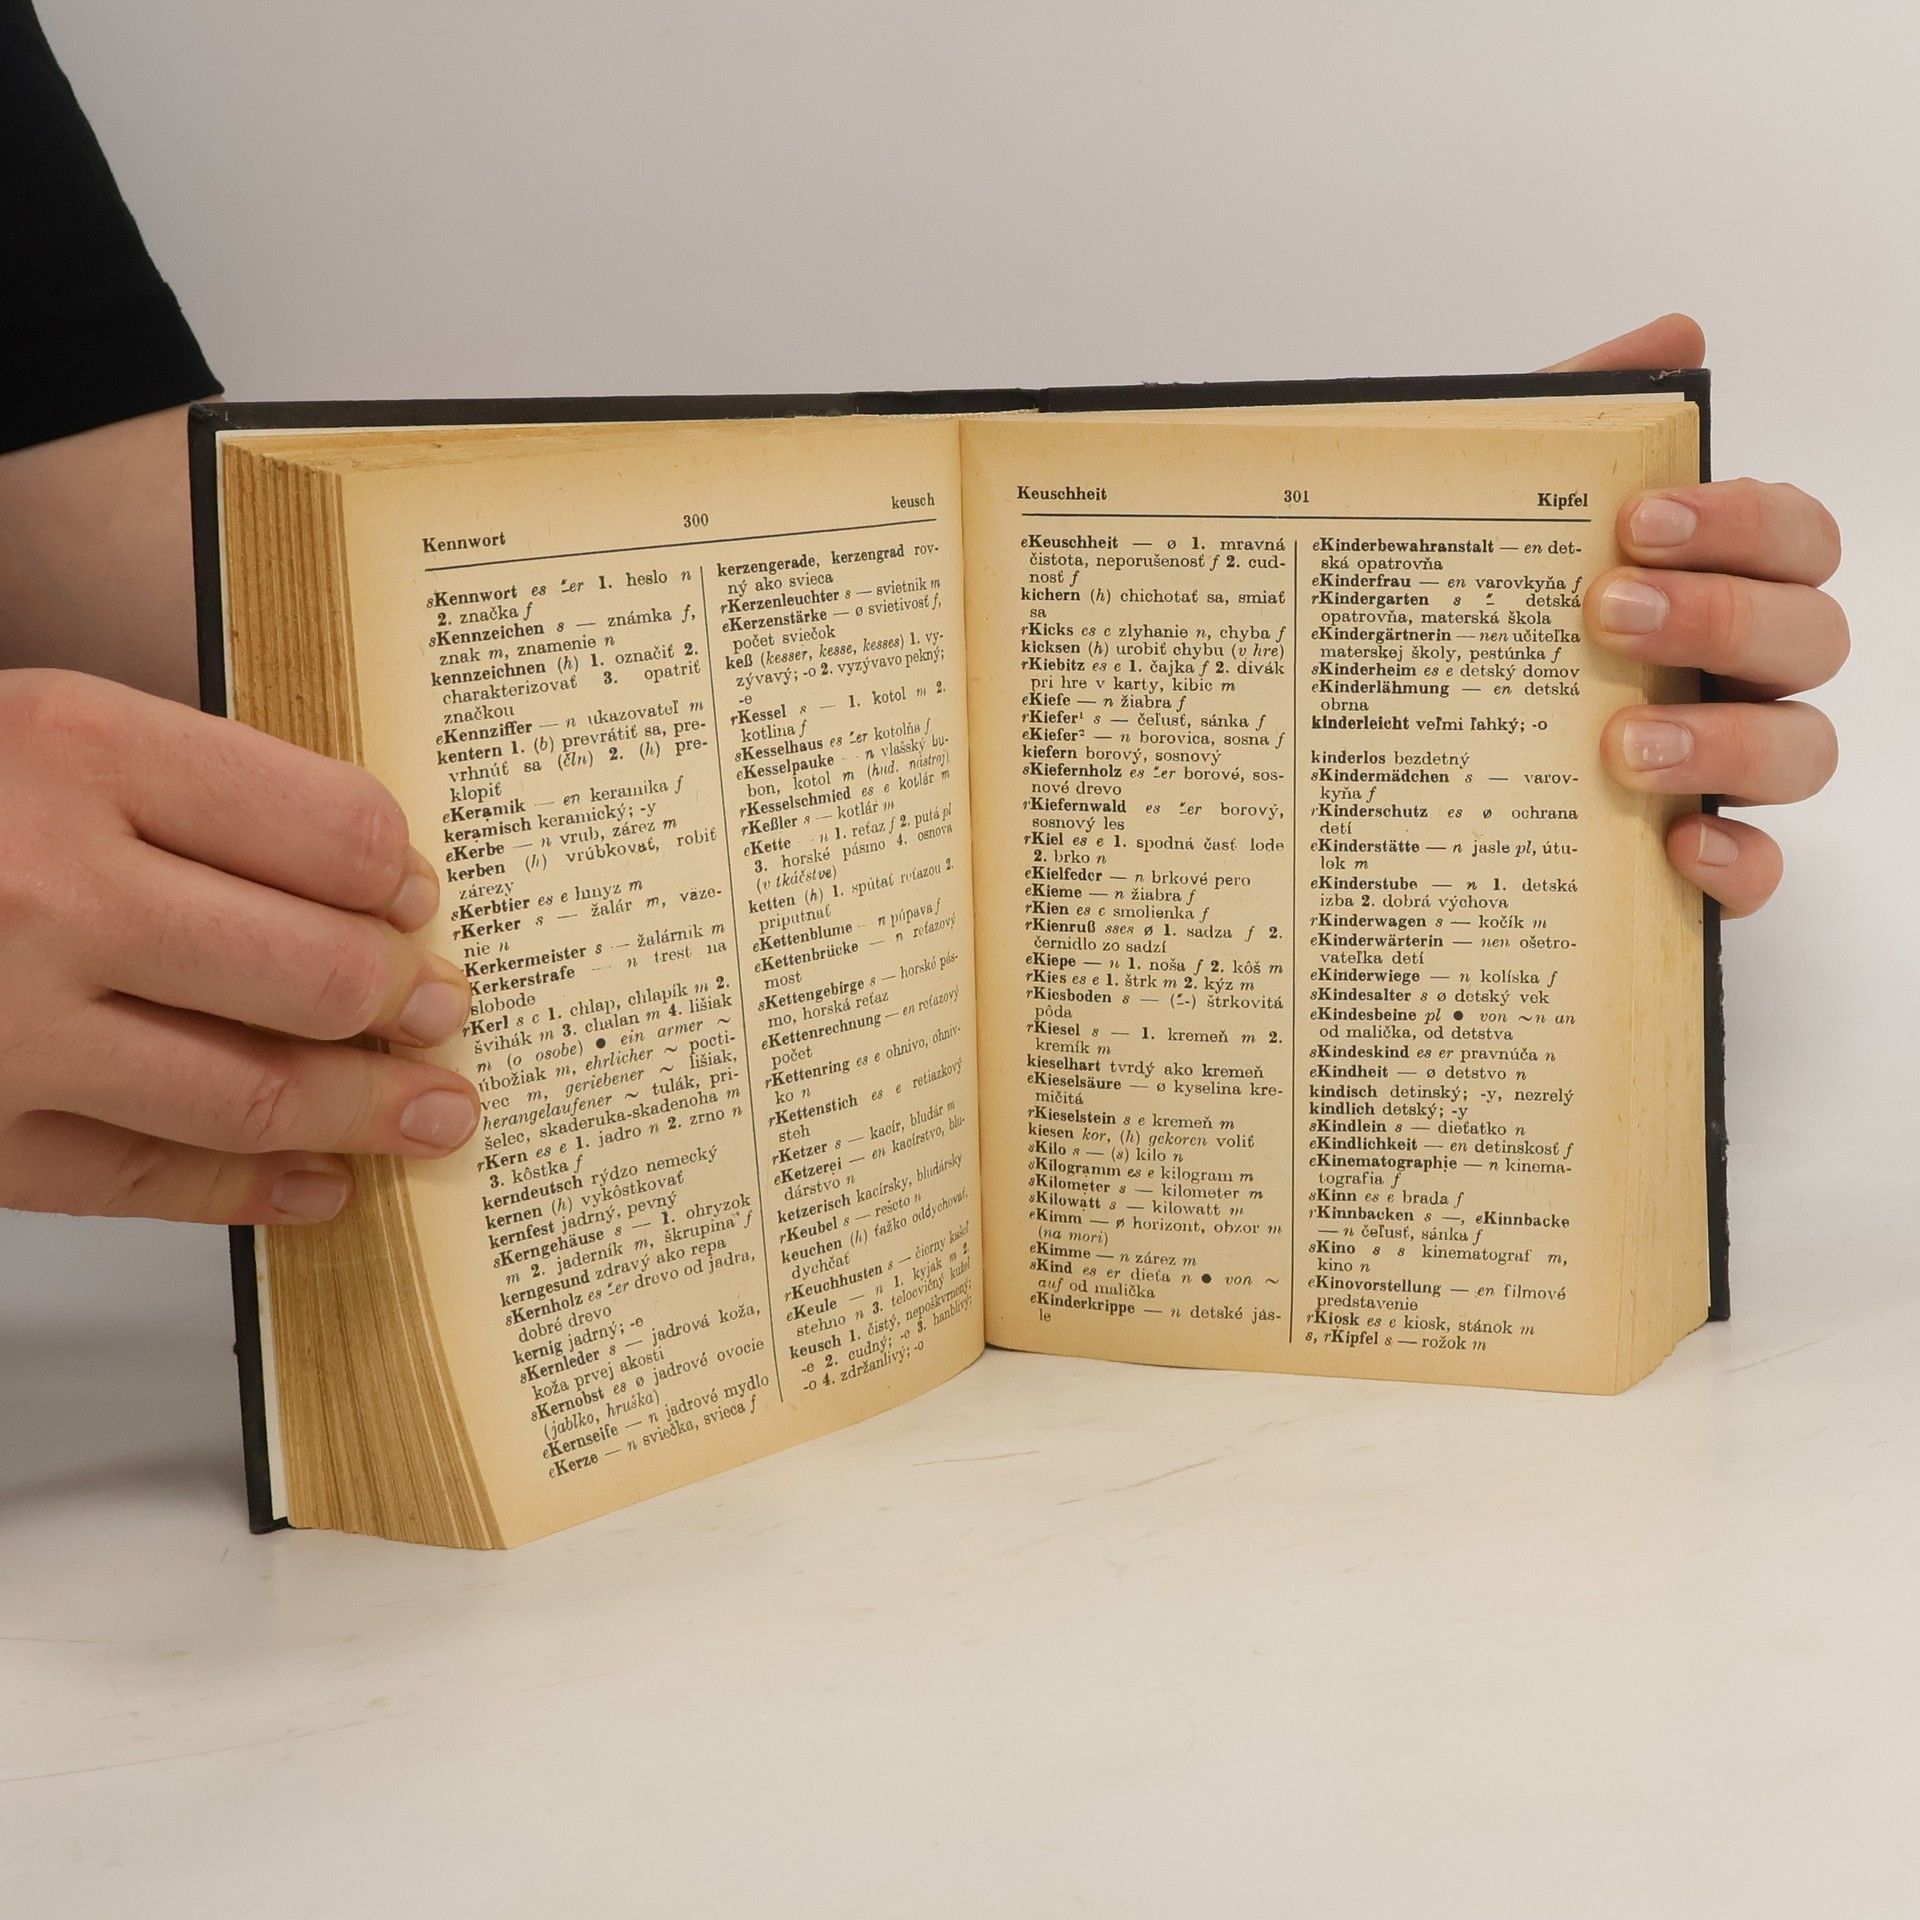 Kennwort 300 keusch
sKennwort es ⸚er 1. heslo n
2. značka f
sKennzeichen s — známka f,
znak m, znamenie n
kennzeichnen (h) 1. označiť 2.
charakterizovať 3. opatriť
značkou
eKennziffer — n ukazovateľ m
kentern 1. (b) prevrátiť sa, pre-
vrhnúť sa (čln) 2. (h) pre-
klopiť
eKeramik — en keramika f
keramisch keramický; -y
eKerbe — n vrub, zárez m
kerben (h) vrúbkovať, robiť
zárezy
sKerbtier es e hmyz m
rKerker s — žalár m, väze-
nie n
rKerkermeister s — žalárnik m
Kerkerstrafe — n trest na
slobode
rKerl s e 1. chlap, chlapík m 2.
švihák m 3. chalan m 4. lišiak
m (o osobe) ● ein armer ~
úbožiak m, ehrlicher ~ pocti-
vec m, geriebener ~ lišiak,
herangelaufener ~ tulák, pri-
šelec, skaderuka-skadenoha m
rKern es e 1. jadro n 2. zrno n
3. kôstka f
kerndeutsch rýdzo nemecký
kernen (h) vykôstkovať
kernfest jadrný, pevný
sKerngehäuse s — 1. ohryzok
m 2. jaderník m, škrupina f
kerngesund zdravý ako repa
sKernholz es ⸚er drevo od jadra,
dobré drevo
kernig jadrný; -e
sKernleder s — jadrová koža,
koža prvej akosti
sKernobst es ø jadrové ovocie
(jablko, hruška)
eKernseife — n jadrové mydlo
eKerze — n sviečka, svieca f
kerzengerade, kerzengrad rov-
ný ako svieca
rKerzenleuchter s — svietnik m
eKerzenstärke — ø svietivosť f,
počet sviečok
keß (kesser, kesse, kesses) 1. vy-
zývavý; -o 2. vyzývavo pekný;
-e
rKessel s — 1. kotol m 2.
kotlina f
sKesselhaus es ⸚er kotolňa f
eKesselpauke — n vlašský bu-
bon, kotol m (hud. nástroj)
rKesselschmied es e kotlár m
rKeßler s — kotlár m
eKette — n 1. reťaz f 2. putá pl
3. horské pásmo 4. osnova
(v tkáčstve)
ketten (h) 1. spútať reťazou 2.
pripútnať
eKettenblume — n púpava f
eKettenbrücke — n reťazový
most
sKettengebirge s — horské pás-
mo, horská reťaz
eKettenrechnung — en reťazový
počet
rKettenring es e ohnivo, ohniv-
ko n
rKettenstich es e retiazkový
steh
rKetzer s — kacír, bludár m
eKetzerei — en kacírstvo, blu-
dárstvo n
ketzerisch kacírsky, bludársky
rKeubel s — rešeto n
keuchen (h) ťažko oddychovať,
dychčať
rKeuchhusten s — čierny kašeľ
eKeule — n 1. kyjak m 2.
stehno n 3. telocvičný kužeľ
keusch 1. čistý, nepoškvrnený;
-e 2. cudný; -e 3. hanblivý;
-o 4. zdržanlivý; -o
Keuschheit 301 Kipfel
eKeuschheit — ø 1. mravná
čistota, neporušenosť f 2. cud-
nosť f
kichern (h) chichotať sa, smiať
sa
rKicks es e zlyhanie n, chyba f
kicksen (h) urobiť chybu (v hre)
rKiebitz es e 1. čajka f 2. divák
pri hre v karty, kibic m
eKiefe — n žiabra f
rKiefer¹ s — čeľusť, sánka f
eKiefer² — n borovica, sosna f
kiefern borový, sosnový
sKiefernholz es ⸚er borové, sos-
nové drevo
rKiefernwald es ⸚er borový,
sosnový les
rKiel es e 1. spodná časť lode
2. brko n
eKielfeder — n brkové pero
eKieme — n žiabra f
rKien es e smolienka f
rKienruß sses ø 1. sadza f 2.
černidlo zo sadzí
eKiepe — n 1. noša f 2. kôš m
rKies es e 1. štrk m 2. kýz m
rKiesboden s — (⸚-) štrkovitá
pôda
rKiesel s — 1. kremeň m 2.
kremík m
kieselhart tvrdý ako kremeň
eKieselsäure — ø kyselina kre-
mičitá
rKieselstein s e kremeň m
kiesen kor, (h) gekoren voliť
sKilo s — (s) kilo n
sKilogramm es e kilogram m
sKilometer s — kilometer m
sKilowatt s — kilowatt m
eKimm — ø horizont, obzor m
(na mori)
eKimme — n zárez m
sKind es er dieťa n ● von ~
auf od malička
eKinderkrippe — n detské jas-
le
eKinderbewahranstalt — en det-
ská opatrovňa
eKinderfrau — en varovkyňa f
rKindergarten s ⸚ detská
opatrovňa, materská škola
eKindergärtnerin — nen učiteľka
materskej školy, pestúnka f
sKinderheim es e detský domov
eKinderlähmung — en detská
obrna
kinderleicht veľmi ľahký; -o
kinderlos bezdetný
sKindermädchen s — varov-
kyňa f
rKinderschutz es ø ochrana
detí
eKinderstätte — n jasle pl, útu-
lok m
eKinderstube — n 1. detská
izba 2. dobrá výchova
rKinderwagen s — kočík m
eKinderwärterin — nen ošetro-
vateľka detí
eKinderwiege — n kolíska f
sKindesalter s ø detský vek
eKindesbeine pl ● von ~n an
od malička, od detstva
sKindeskind es er pravnúča n
eKindheit — ø detstvo n
kindisch detinský; -y, nezrelý
kindlich detský; -y
sKindlein s — dieťatko n
eKindlichkeit — en detinskosť f
eKinematographie — n kinema-
tografia f
sKinn es e brada f
rKinnbacken s —, eKinnbacke
— n čeľusť, sánka f
sKino s s kinematograf m,
kino n
eKinovorstellung — en filmové
predstavenie
rKiosk es e kiosk, stánok m
s, rKipfel s — rožok m